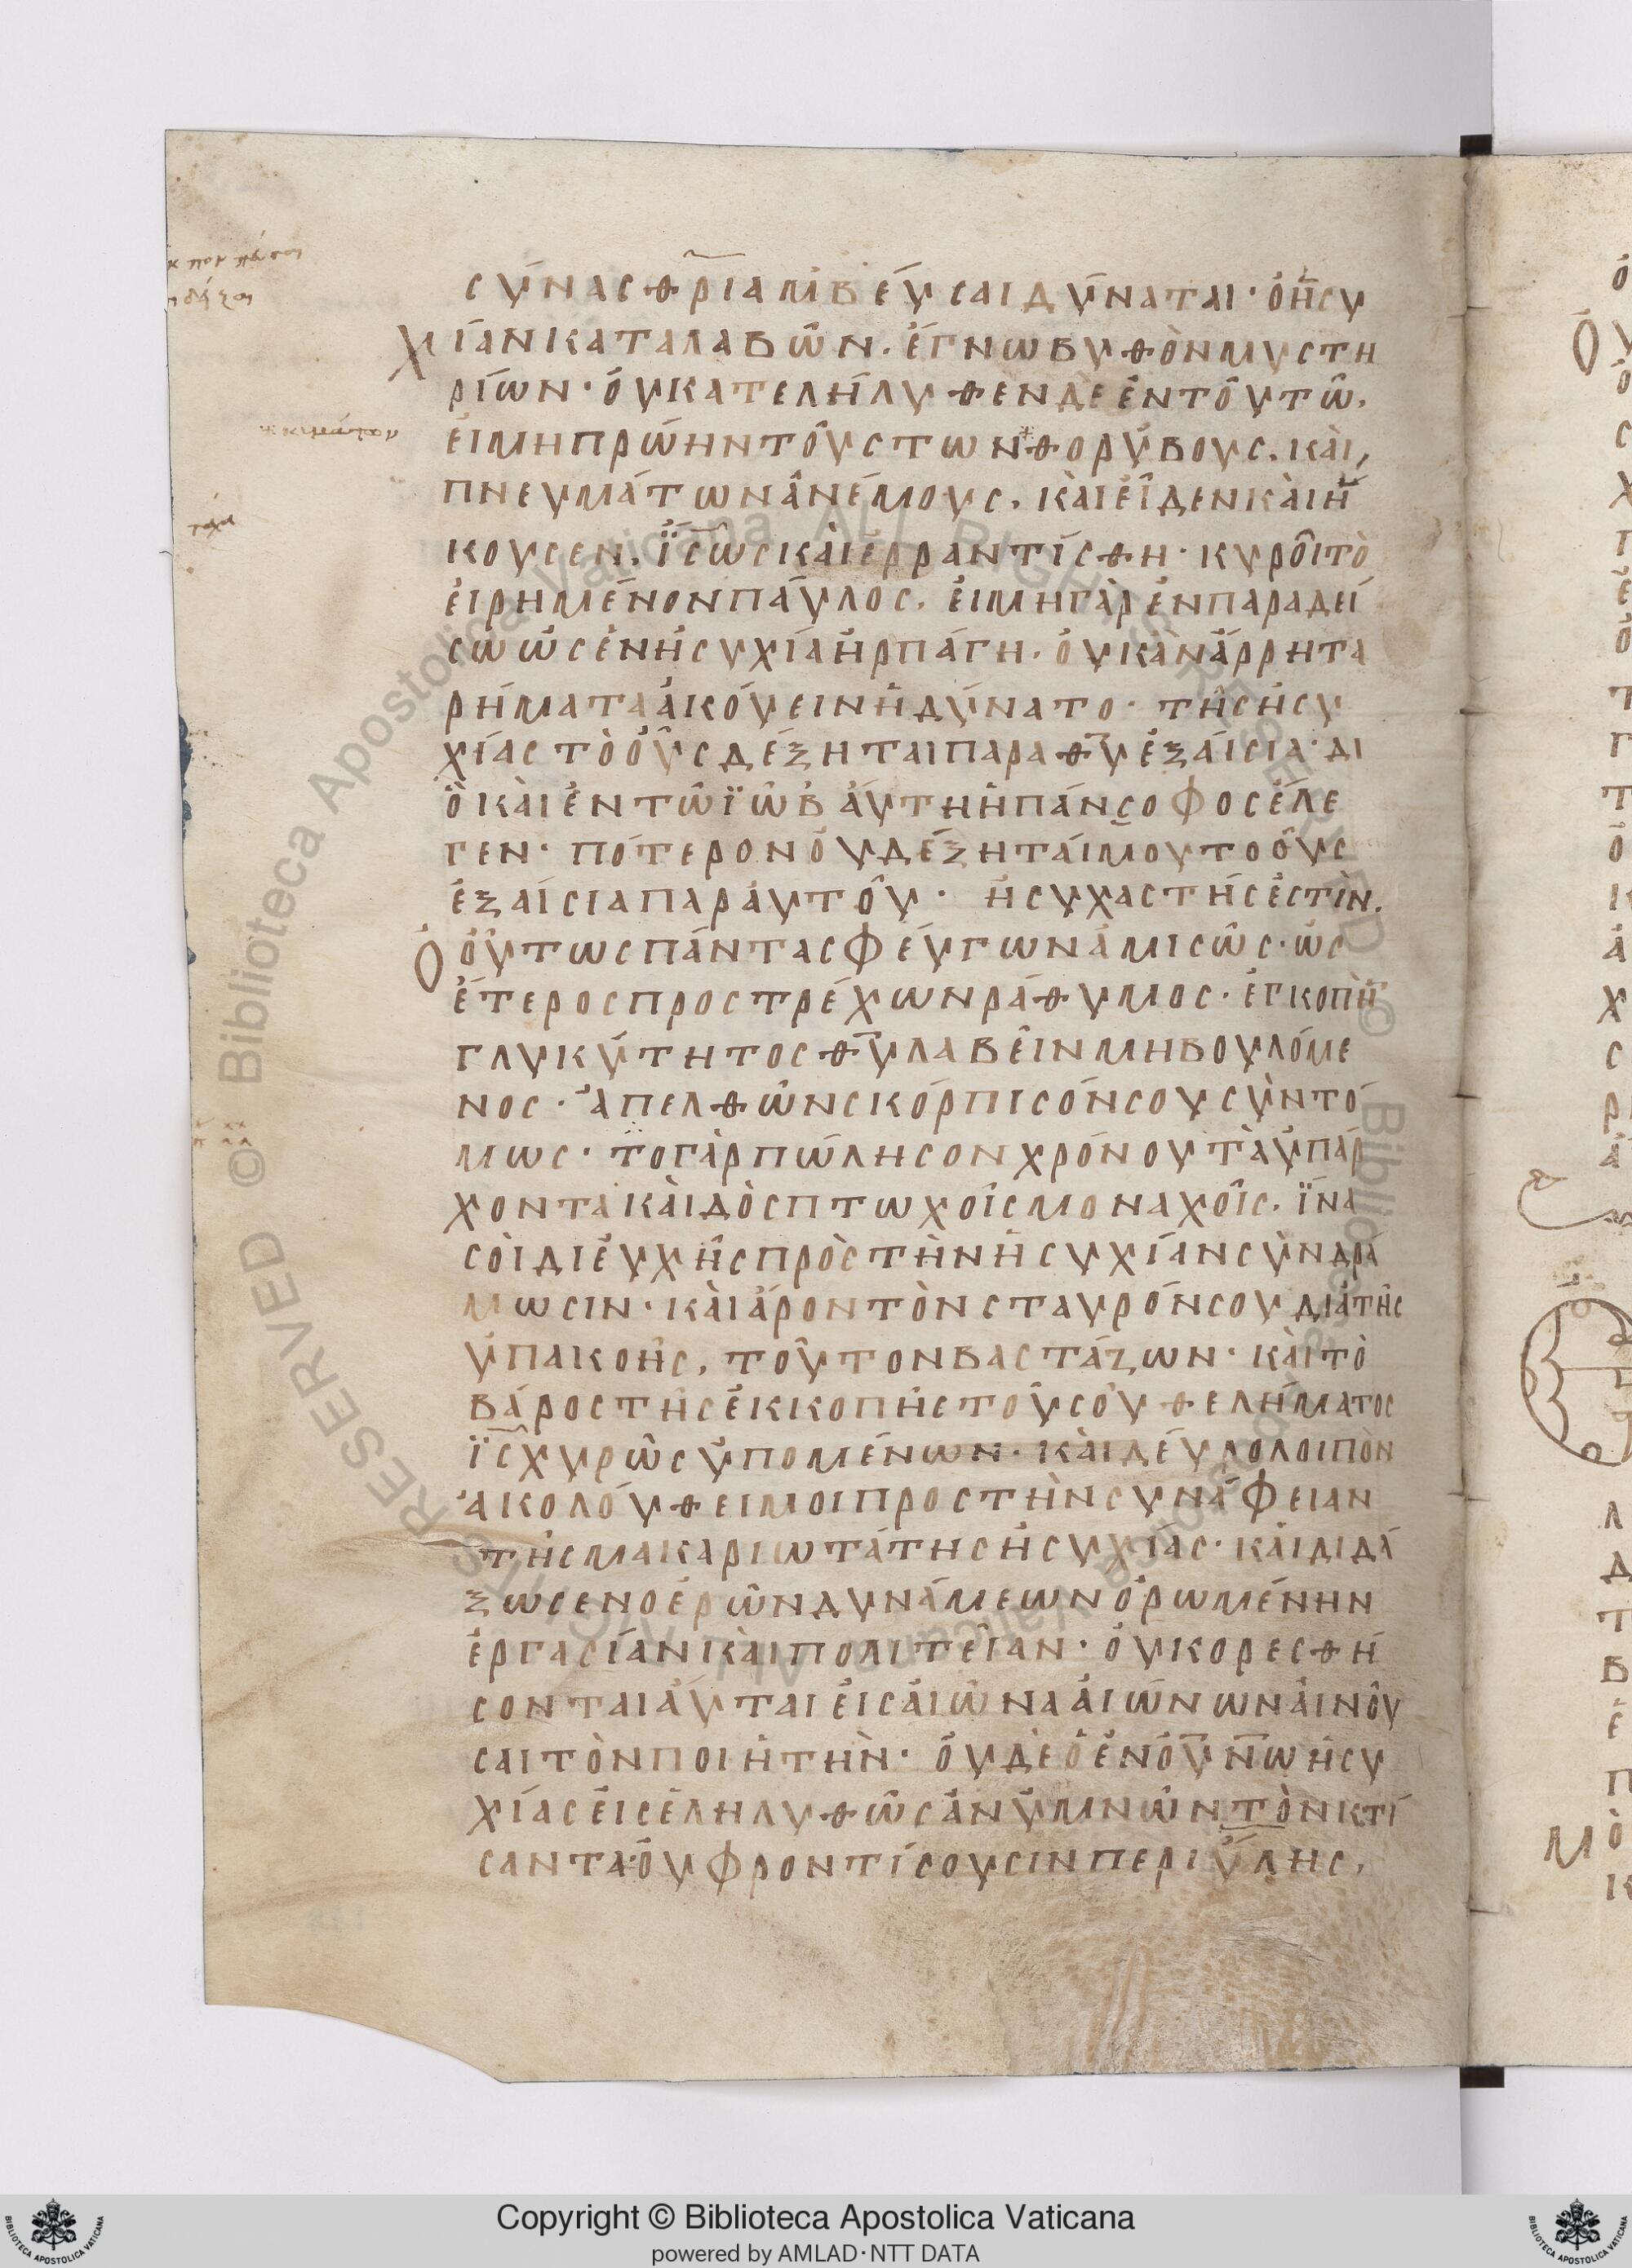 σύνας θριαμβεύσαι δύναται· ὁ ἡσυ
χίαν καταλαβὼν. ἔγνω βυθὸν μυστη
ρίων· ὀυ κατελήλυθεν δὲ ἐν τούτω,
ἐι μὴ πρώην τοὺς τῶν θορύβους. καὶ
πνευμάτων ἀνέμους. καὶ εἶδεν καὶ ἤ
κουσεν. ἴσως καὶ ἐρραντίσθη· κυροῖ τὸ
ἐιρημένον παύλος. ἐι μὴ γὰρ ἐν παραδεί
σω ὡς ἐν ἡσυχία ἡρπάγη. ὀυκ ἂν ἄρρητα
ρήματα ἀκούειν ἠδύνατο· τῆς ἡσυ
χίας τὸ οὖς δέξηται παρα θυ ἐξαίσια· δι
ὸ καὶ ἐν τῶ ϊὼβ ἀύτη ἡ πάνσοφος ἔλε
γεν· πότερον ὀυ δέξηταί μου το οὖς
ἐξαίσια παρ ἀυτοῦ· ἡσυχαστής ἐστὶν.
Ὁ ὁύτως πάντας φέυγων ἀμισῶς. ὡς
ἕτερος προστρέχων ράθυμος· ἐγκοπὴ
γλυκύτητος θυ λαβεῖν μὴ βουλόμε
νος· ἀπελθὼν σκόρπισόν σου συντό
μως· το γὰρ πώλησον χρόνου τὰ ὑπάρ
χοντα καὶ δὸς πτωχοῖς μοναχοῖς. ἵνα
σοὶ δι ἐυχῆς πρὸς τὴν ἡσυχίαν συνδρά
μωσιν· καὶ ἆρον τὸν σταυρόν σου διὰ τῆς
ὑπακοῆς, τοῦτον βαστάζων· καὶ τὸ
βάρος τῆς ἐκκοπῆς τοῦ σοῦ θελήματος
ϊσχυρῶς ὑπομένων· καὶ δέυρο λοιπὸν
ἀκολούθει μοι προς τὴν συνάφειαν
τῆς μακαριωτάτης ἡσυχίας· καὶ διδά
ξω σε νοερῶν δυνάμεων ὁρωμένην
ἐργασίαν καὶ πολιτεῖαν· ὀυ κορεσθή
σονται ἀύται ἐις ἀιῶνα ἀιώνων ἀινοῦ
σαι τὸν ποιητὴν· ὀυδὲ ὁ ἐν ὀυνω ἡσυ
χίας ἐισεληλυθὼς ἀνυμνῶν τὸν κτί
σαντα· ὀυ φροντίσουσιν περι ὕλης,
κυμάτων
τάχα